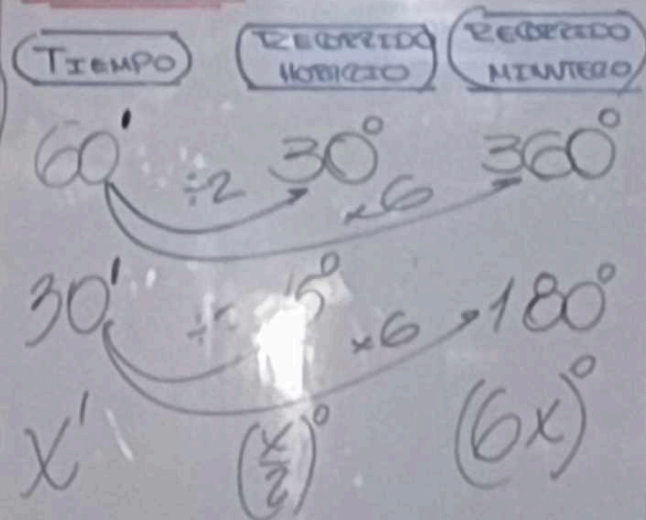 TIEMPO RECORRIDO HORARIO RECORRIDO MINUTERO
60' ÷2 30° ×6 360°
30' ÷ 5° ×6 180°
x' (x/2)° (6x)°